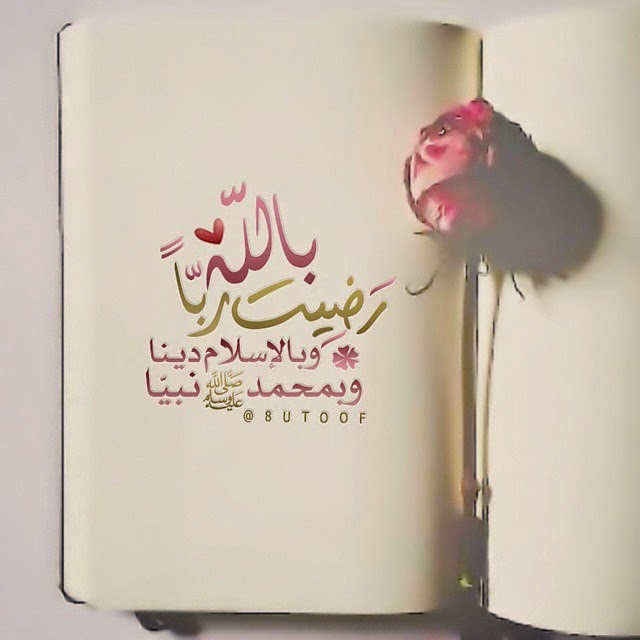 رَضيت بالله ربّاً
وَبالإسلام دينا
وبمحمد ﷺ نبيّا
@8UTOOF